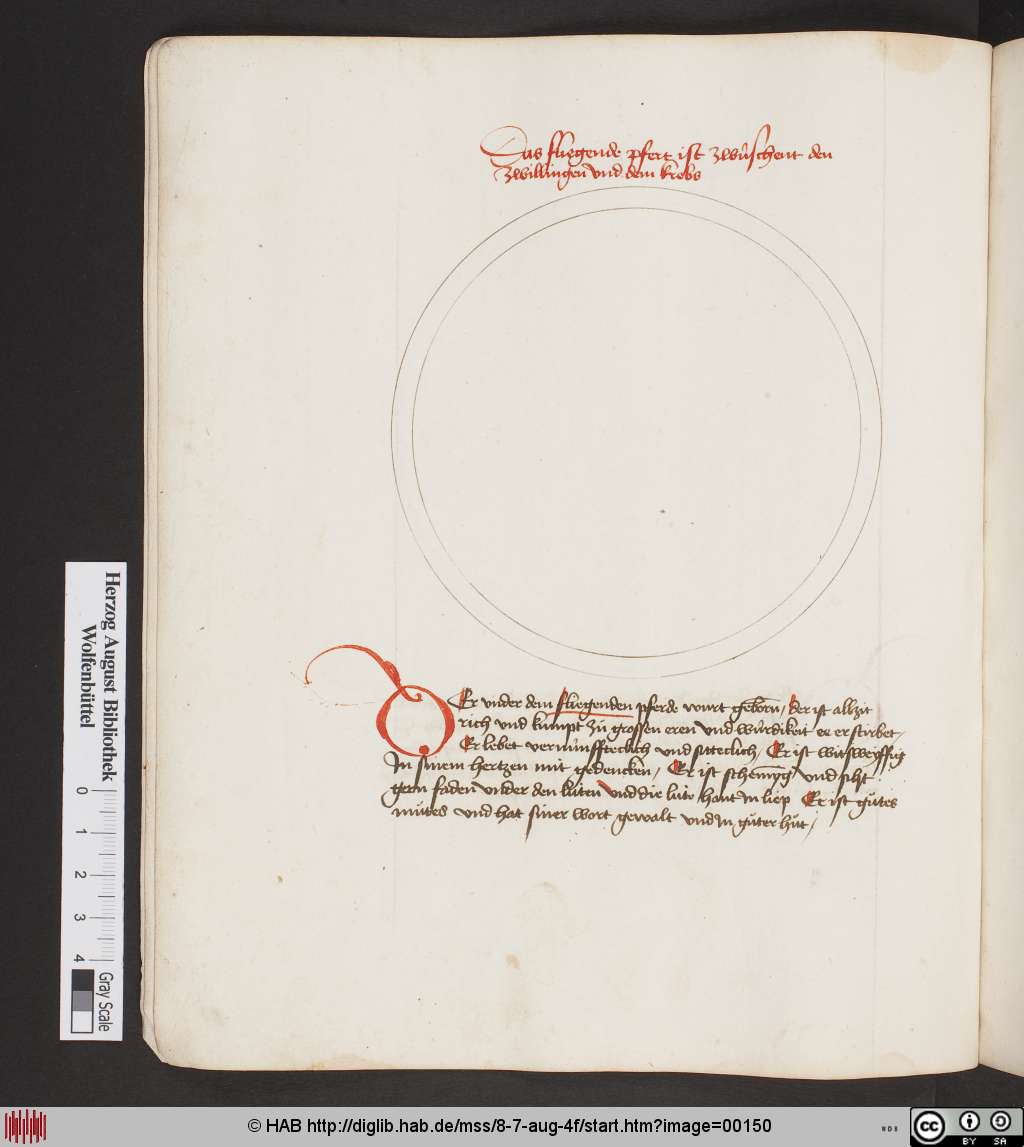 Das fliegende pfert ist zwüschent den
zwillingen und dem krebs
Der vnder dem fliegenden pferde würt geborn / der ist allzit
rich vnd kumpt zů grossen eren vnd würdikeit ee er stirbet /
Er lebet vernünffteclich vnd sitteclich / Er ist witsweyffig
In sinem hertzen mit gedencken / Er ist schemig vnd siht
gern faden vnder den lüten vnd die lüte hant In liep Er ist gůtes
můtes vnd hat siner wort gewalt vnd In gůter hůt /
Herzog August Bibliothek
Wolfenbüttel
0 1 2 3 4
Gray Scale
© HAB http://diglib.hab.de/mss/8-7-aug-4f/start.htm?image=00150
WDB
cc BY SA